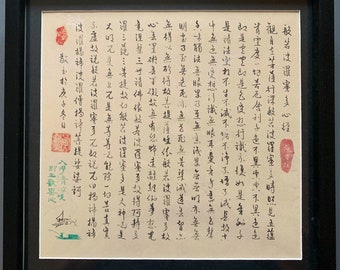 般若波羅蜜多心經
觀自在菩薩行深般若波羅蜜多時照見五蘊
皆空度一切苦厄舍利子色不異空空不異色色
即是空空即是色受想行識亦復如是舍利子
是諸法空相不生不滅不垢不淨不增不減是故空
中無色無受想行識無眼耳鼻舌身意無色
聲香味觸法無眼界乃至無意識界無無明亦無無
明盡乃至無老死亦無老死盡無苦集滅道無智亦
無得以無所得故菩提薩埵依般若波羅蜜多故
心無罣礙無罣礙故無有恐怖遠離顛倒夢想究
竟涅槃三世諸佛依般若波羅蜜多故得阿耨多
羅三藐三菩提故知般若波羅蜜多是大神咒是
大明咒是無上咒是無等等咒能除一切苦真實
不虛故說般若波羅蜜多咒即說咒曰揭諦揭諦
波羅揭諦波羅僧揭諦菩提薩婆訶
敬書於庚子冬日